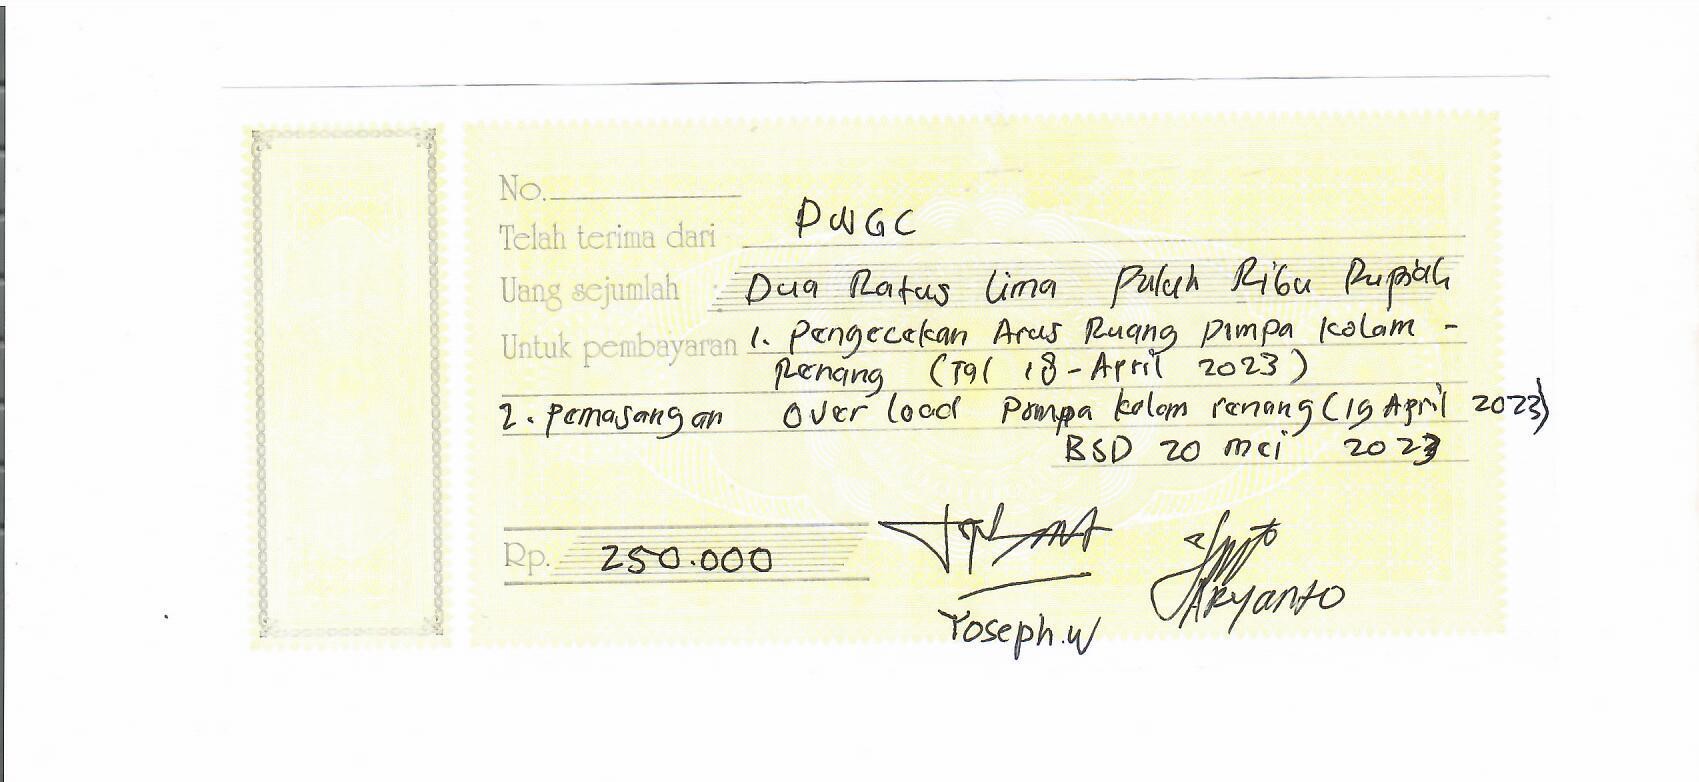 No.
Telah terima dari PWGC
Uang sejumlah : Dua Ratus Lima Puluh Ribu Rupiah
Untuk pembayaran 1. Pengecekan Arus Ruang Pompa Kolam -
Renang (Tgl 18 - April 2023)
2. Pemasangan Over load Pompa kolam renang (19 April 2023)
BSD 20 mei 2023
Rp. 250.000
Yoseph.W
ARyanto